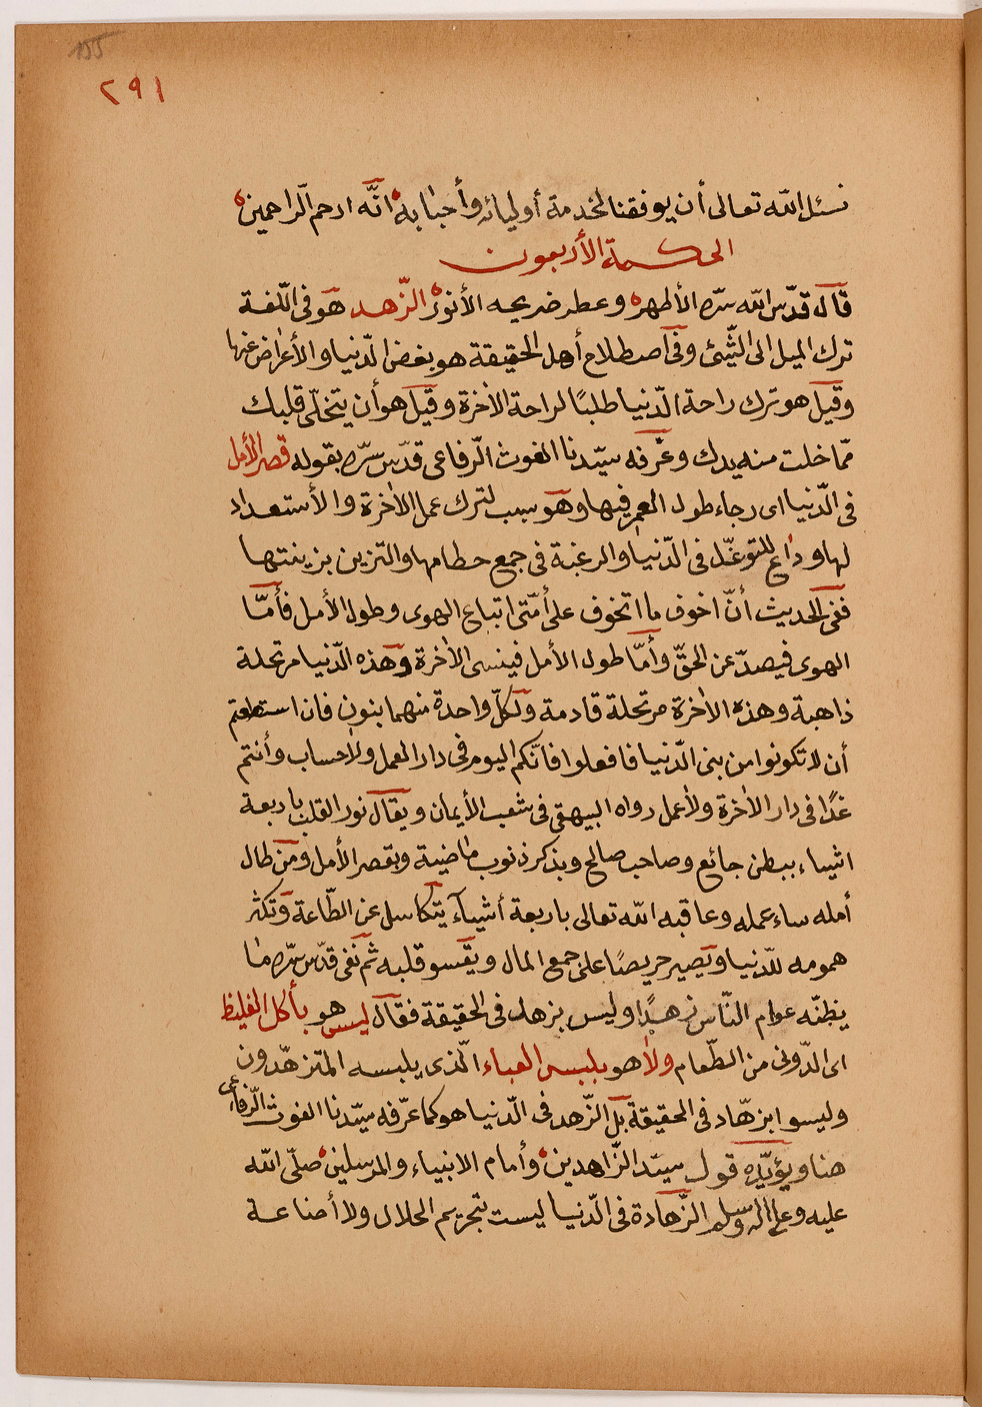 155
٢٩١
نسئل الله تعالى أن يوفقنا لخدمة أوليائه وأحبابه انّه ارحم الّراحمين
الحكمة الأربعون
قال قدّس الله سرّه الأطهر وعطر ضريحه الأنور الزّهد هو فى اللّغة
ترك الميل الى الشّيئ وفى اصطلاح أهل الحقيقة هو بغض الدّنيا والأعراض عنها
وقيل هو ترك راحة الدّنيا طلبًا لراحة الأخرة وقيل هو أن يتخلّى قلبك
ممّا خلت منه يدك وعّرفه سيّدنا الغوث الّرفاعى قدّس سرّه بقوله قصر الأمل
فى الدّنيا اى رجاء طول العمر فيها وهو سبب لترك عمل الأخرة والأستعداد
لها وداع للتوغّل فى الدّنيا والرغبة فى جمع حطامها والتّزين بزينتها
ففى الحديث أنّ اخوف ما اتخوف على أمّتى اتباع الهوى وطول الأمل فأمّا
الهوى فيصدّ عن الحقّ وأمّا طول الأمل فينسى الأخرة وهذه الدّنيا مرتحلة
ذاهبة وهذه الأخرة مرتحلة قادمة ولكلّ واحدة منهما بنون فان استطعتم
أن لا تكونوا من بنى الدّنيا فافعلوا فانّكم اليوم فى دار العمل ولا حساب وأنتم
غدًا فى دار الأخرة ولا عمل رواه البيهقى فى شعب الأيمان ويقال نور القلب باربعة
اشياء ببطن جائع وصاحب صالح وبذكر ذنوب ماضية وبقصر الأمل ومن طال
أمله ساء عمله وعاقبه الله تعالى باربعة أشيآء يتكاسل عن الطّاعة وتكثر
همومه للدّنيا ويصير حريصًا على جمع المال ويقسو قلبه ثم نفى قدّس سرّه ما
يظنّه عوام النّاس زهدًا وليس بزهد فى الحقيقة فقال ليس هو بأكل الغليظ
اى الدّونى من الطّعام ولا هو بلبس العباء الّذى يلبسه المتزهّدون
وليسوا بزهّاد فى الحقيقة بل الزّهد فى الدّنيا هو كما عرّفه سيّدنا الغوث الّرفاعى
هنا ويؤيّده قول سيّد الزّاهدين وأمام الانبياء والمرسلين صلّى الله
عليه وعلى اله وسلم الزّهادة فى الدّنيا ليست بتحريم الحلال ولا أضاعة